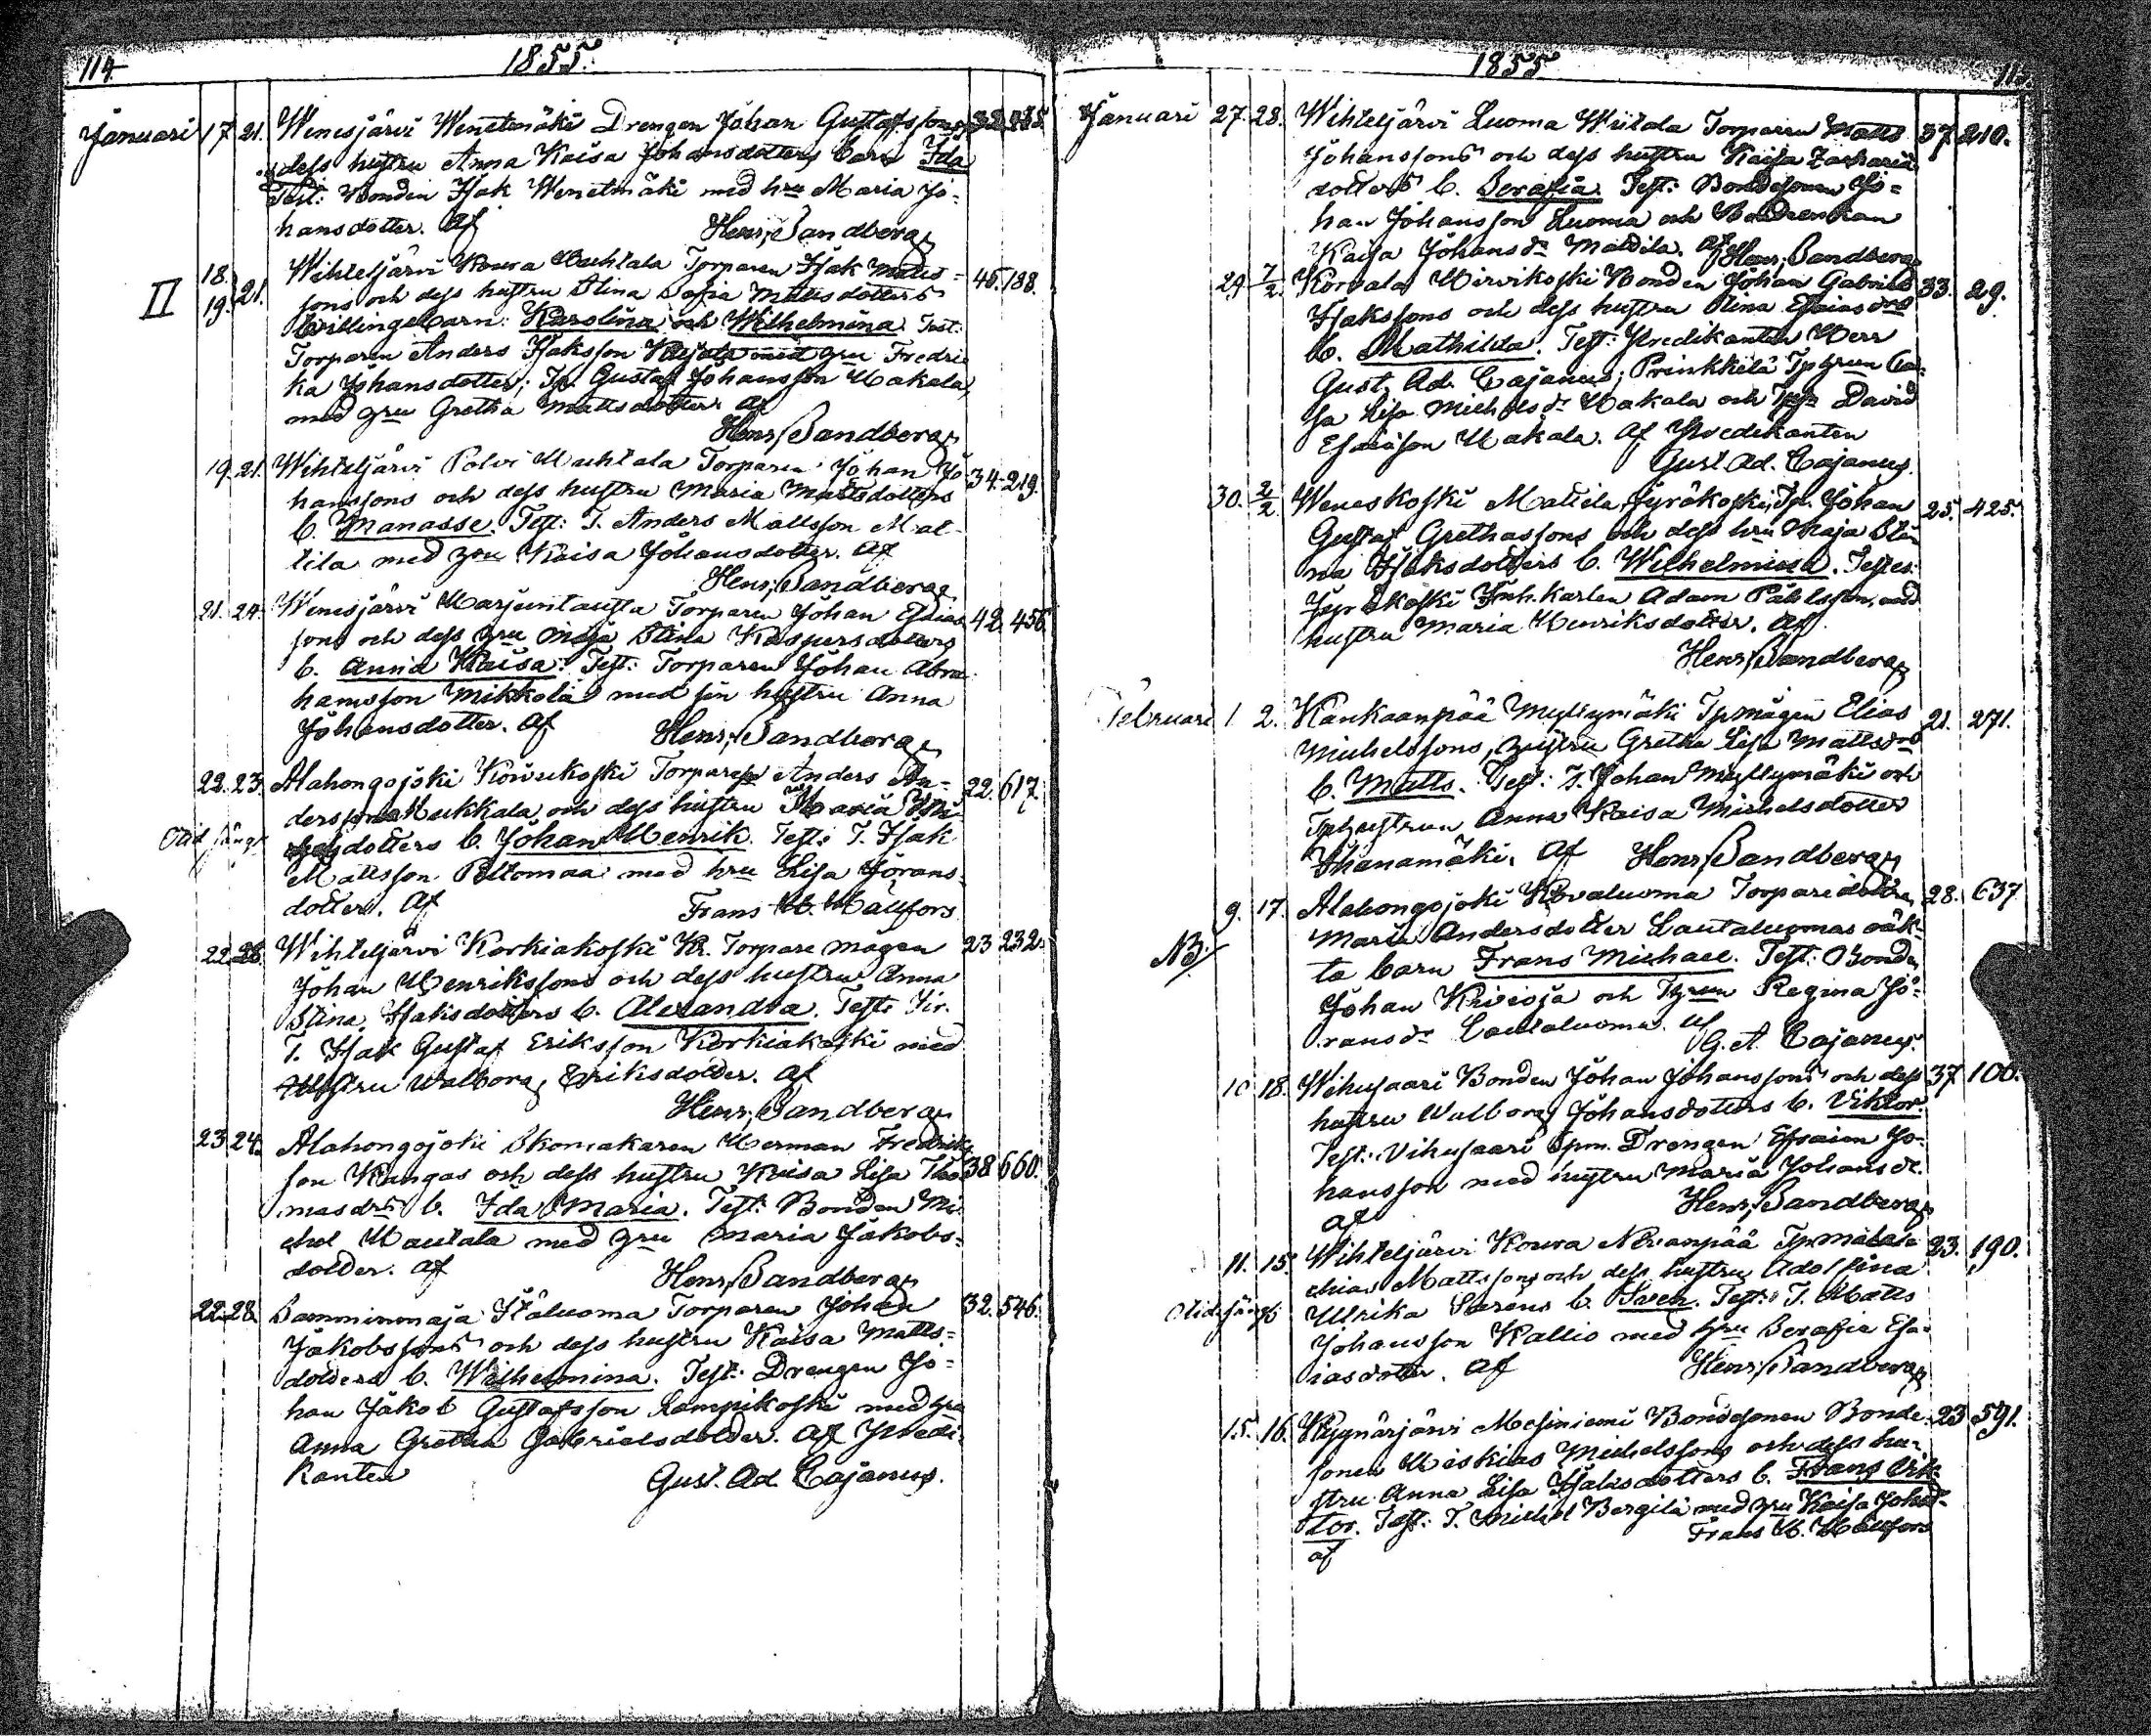 114
1855.
Januari 17 21. Winesjärvi Wenetmäki Drengen Johan Gustafssons 32. 435.
dess hustru Anna Kaisa Johansdotters barn Ida
Test: Bonden Isak Wenetmäki med hru Maria Jo-
hansdotter. Af Henr. Sandberg
II 18. 19. 21. Wihteljärvi Koura Wachtala Torparen Isak Matts- 45. 188.
sons och dess hustru Stina Sofia Mattsdotters
tvillingebarn: Karolina och Wilhelmina. Test:
Torparen Anders Isaksson Katjala med hru Fredri
ka Johansdotter; Tp. Gustaf Johansson Hakala,
med hru Gretha Mattsdotter. af
Henr. Sandberg
19. 21. Wihteljärvi Polvi Machtala Torparen Johan Jo- 34. 219.
hanssons och dess hustru Maria Mattsdotters
b. Manasse. Test: T. Anders Mattsson Mat-
tila med hru Kaisa Johansdotter. af
Henr. Sandberg
21. 24. Winesjärvi Marjuntausta Torparen Johan Esaias 42. 456.
sons och dess hru Maja Stina Kaspersdotters
b. Anna Kaisa. Test: Torparen Johan Abra-
hamsson Mikkola med sin hustru Anna
Johansdotter. Af Henr. Sandberg
22. 23. Alahongojoki Kouukoski Torparen Anders An- 22. 617
derssons Hukkala och dess hustru Maria
dotters b. Johan Henrik. Test: T. Isak
Mattsson Peltomaa med hru Lisa Görans-
dotter. Af Frans H. Hällfors
22. 28. Wihteljärvi Korkiakoski Kr. Torpare mågen 23 232.
Johan Henrikssons och dess hustru Anna
Stina Isaksdotters b. Alexandra. Test:
T. Isak Gustaf Eriksson Korkiakoski med
Hustru Walborg Eriksdotter. af
Henr. Sandberg
23 24. Alahongojoki Skomakaren Herman Fredriks
son Kangas och dess hustru Kaisa Lisa Tho- 38 660.
masdrs b. Ida Maria. Test: Bonden Mi
chel Hautala med hru Maria Jakobs-
dotter. af Henr. Sandberg
22. 28. Samminmaja Itäluoma Torparen Johan 32. 546.
Jakobssons och dess hustru Kaisa Matts-
dotters b. Wilhelmina. Test: Drengen Jo-
han Jakob Gustafsson Lampikoski med hru
Anna Gretha Gabrielsdotter. Af Predi-
kanten Gust. Ad. Cajanus.
1855
Januari 27. 28. Wihteljärvi Luoma Wiitala Torparen Matts 37. 210.
Johanssons och dess hustru Kaisa Zacharia
dotters b. Serafia. Test: Bondesonen Jo-
han Johansson Luoma och Bondeenkan
Kaisa Johansdr Mattila. Af Henr. Sandberg
29. 7/2. Korvala Hirvikoski Bonden Johan Gabriel 33. 29.
Isakssons och dess hustru Stina Esaiasdrs
b. Mathilda. Test: Predikanten Herr
Gust. Ad. Cajanus; Prinkkilä Tphrun Ca-
sa Lisa Michelsdr Hakala och David
Esaiasson Hakala. Af Predikanten
Gust. Ad. Cajanus.
30. 2/2 Weneskoski Mattila Jyräkoski Tp. Johan 25. 425.
Gustaf Grethassons och dess hru Maja Sti
na Isaksdotters b. Wilhelmina. Testes:
Jyräkoski Inh. karlen Adam Påhlsson, med
hustru Maria Henriksdotter. Af
Henr. Sandberg
Februari 1. 2. Kankaanpää Myllymäki Tpmågen Elias 21. 271.
Michelssons, hustru Gretha Lisa Mattsdrs
b. Matts. Test: T. Johan Myllymäki och
Tphustrun Anna Kaisa Michelsdotter
Ihanamäki. Af Henr. Sandberg
NB. 9. 17. Alahongojoki Kovaluoma Torparedottren 28. 637
Maria Andersdotter Lautaluomas oäk-
ta barn Frans Michael. Test: Bonden
Johan Krivioja och Regina Jö-
ransdr Lautaluoma. af
G. A. Cajanus.
10 18. Wihusaari Bonden Johan Johanssons och dess 37 100.
hustru Walborg Johansdotters b. Viktor.
Test: Vihusaari Drengen Efraim Jo-
hansson med hustru Maria Johansdr.
af Henr. Sandberg
11. 15. Wihteljärvi Koura Nevanpää Tpmåg 23. 190.
Mattssons och dess hustru Adolfina
Ullrika Sarens b. Sven. Test: T. Matts
Johansson Kallio med hru Serafia Esa-
iasdotter. af Henr. Sandberg
15. 16. Kyynärjärvi Mesiniemi Bondesonen Bonde 23 591.
sonen Heskias Michelssons och dess hu-
stru Anna Lisa Isaksdotters b. Frans Vik-
tor. Test: T. Michel Bergilä med hru Kaisa Johsdr.
af Frans H. Hällfors